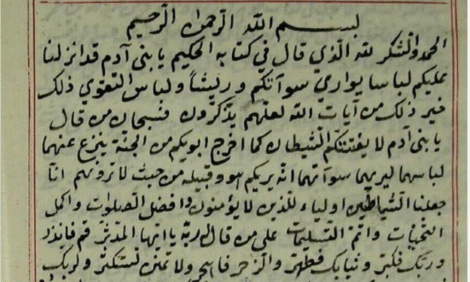 بسم الله الرحمن الرحيم
الحمد والشكر لله الذي قال في كتابه الحكيم يا بنى آدم قد انزلنا
عليكم لباسا يواري سوآتكم وريشا ولباس التقوي ذلك
خير ذلك من آيات الله لعلهم يذكرون فسبحان من قال
يا بنى آدم لا يفتننكم الشيطان كما اخرج ابويكم من الجنة ينزع عنهما
لباسهما ليريهما سوآتهما انه يريكم هو وقبيله من حيث لا ترونهم انا
جعلنا الشياطين اولياء للذين لا يؤمنون وافضل الصلوات واكمل
التحيات واتم التسليمات على من قال ربه يا ايها المدثر قم فانذر
وربك فكبر وثيابك فطهر والرجز فاهجر ولا تمنن تستكثر ولربك